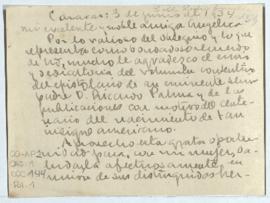 Caracas: 3 de junio de 1934
mi excelente y noble amiga Angélica
Por lo valioso del obsequio y lo que
representa como bondadoso recuerdo
de Ud, mucho le agradezco el envío
y dedicatoria del volumen contentivo
del epistolario de su eminente
padre D. Ricardo Palma y de las
publicaciones con motivo del
del nacimiento de tan
insigne americano.
Aprovecho esta grata
para, con mi mujer,
afectuosamente, en
unión de sus distinguidos her-